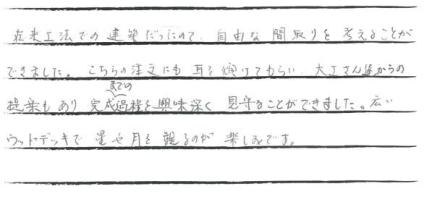 在来工法での建築だったので、自由な間取りを考えることが
できました。こちらの注文にも耳を傾けてもらい、大工さん達からの
提案もあり完成までの過程を興味深く見守ることができました。広い
ウッドデッキで星や月を観るのが楽しみです。